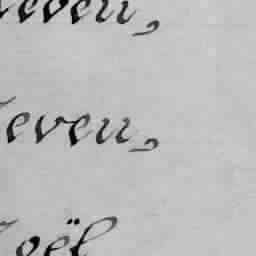 even,
even,
oël